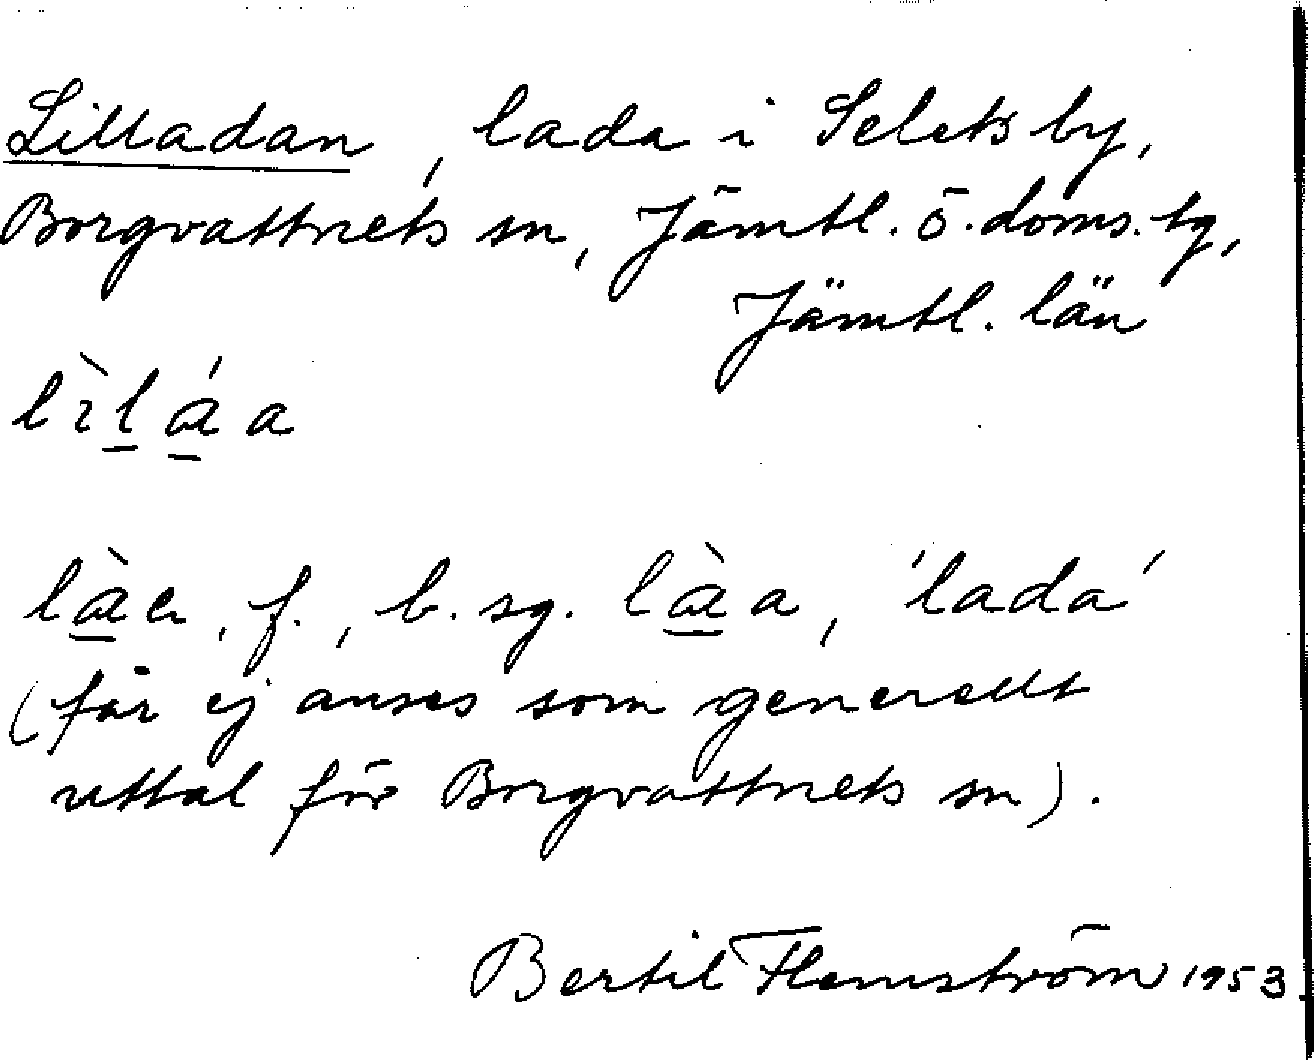 Lilladan, lada i Selets by,
Borgvattnets sn, Jämtl. ö. doms. tg,
Jämtl. län
lìlá̱a
là̱e, f., b. sg. là̱a, 'lada'
(får ej anses som generellt
uttal för Borgvattnets sn).
Bertil Flemström 1953